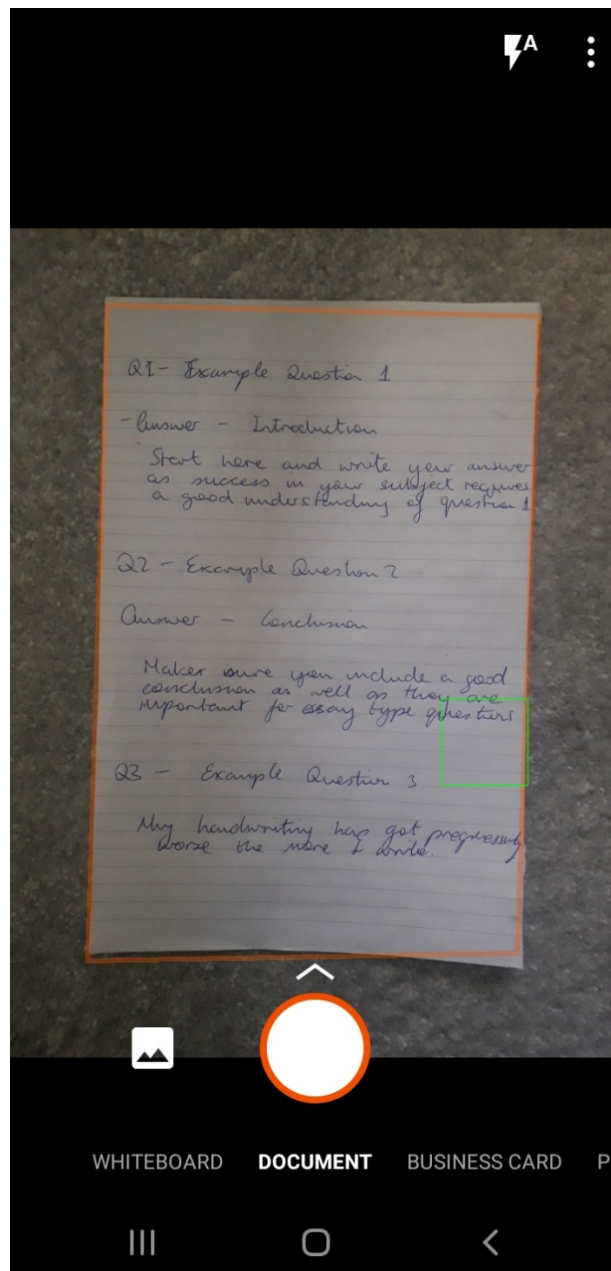 A
Q1 - Example Question 1
- Answer - Introduction
Start here and write your answer
as success in your subject requires
a good understanding of question 1
Q2 - Example Question 2
Answer - Conclusion
Makes sure you include a good
conclusion as well as they are
important for essay type questions
Q3 - Example Question 3
My handwriting has got progressively
worse the more I write.
WHITEBOARD DOCUMENT BUSINESS CARD P